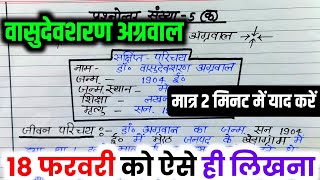 प्रश्नोत्तर संख्या-5 (क)
वासुदेवशरण अग्रवाल
अग्रवाल
संक्षिप्त परिचय
नाम- डॉ० वासुदेवशरण अग्रवाल
जन्म- 1904 ई०
जन्म स्थान-
शिक्षा- लखन
मृत्यु- सन्
मात्र 2 मिनट में याद करें
जीवन परिचय:- डॉ० अग्रवाल का जन्म सन् 1904
ई० में मेरठ जनपद के खेड़ाग्राम में
18 फरवरी को ऐसे ही लिखना